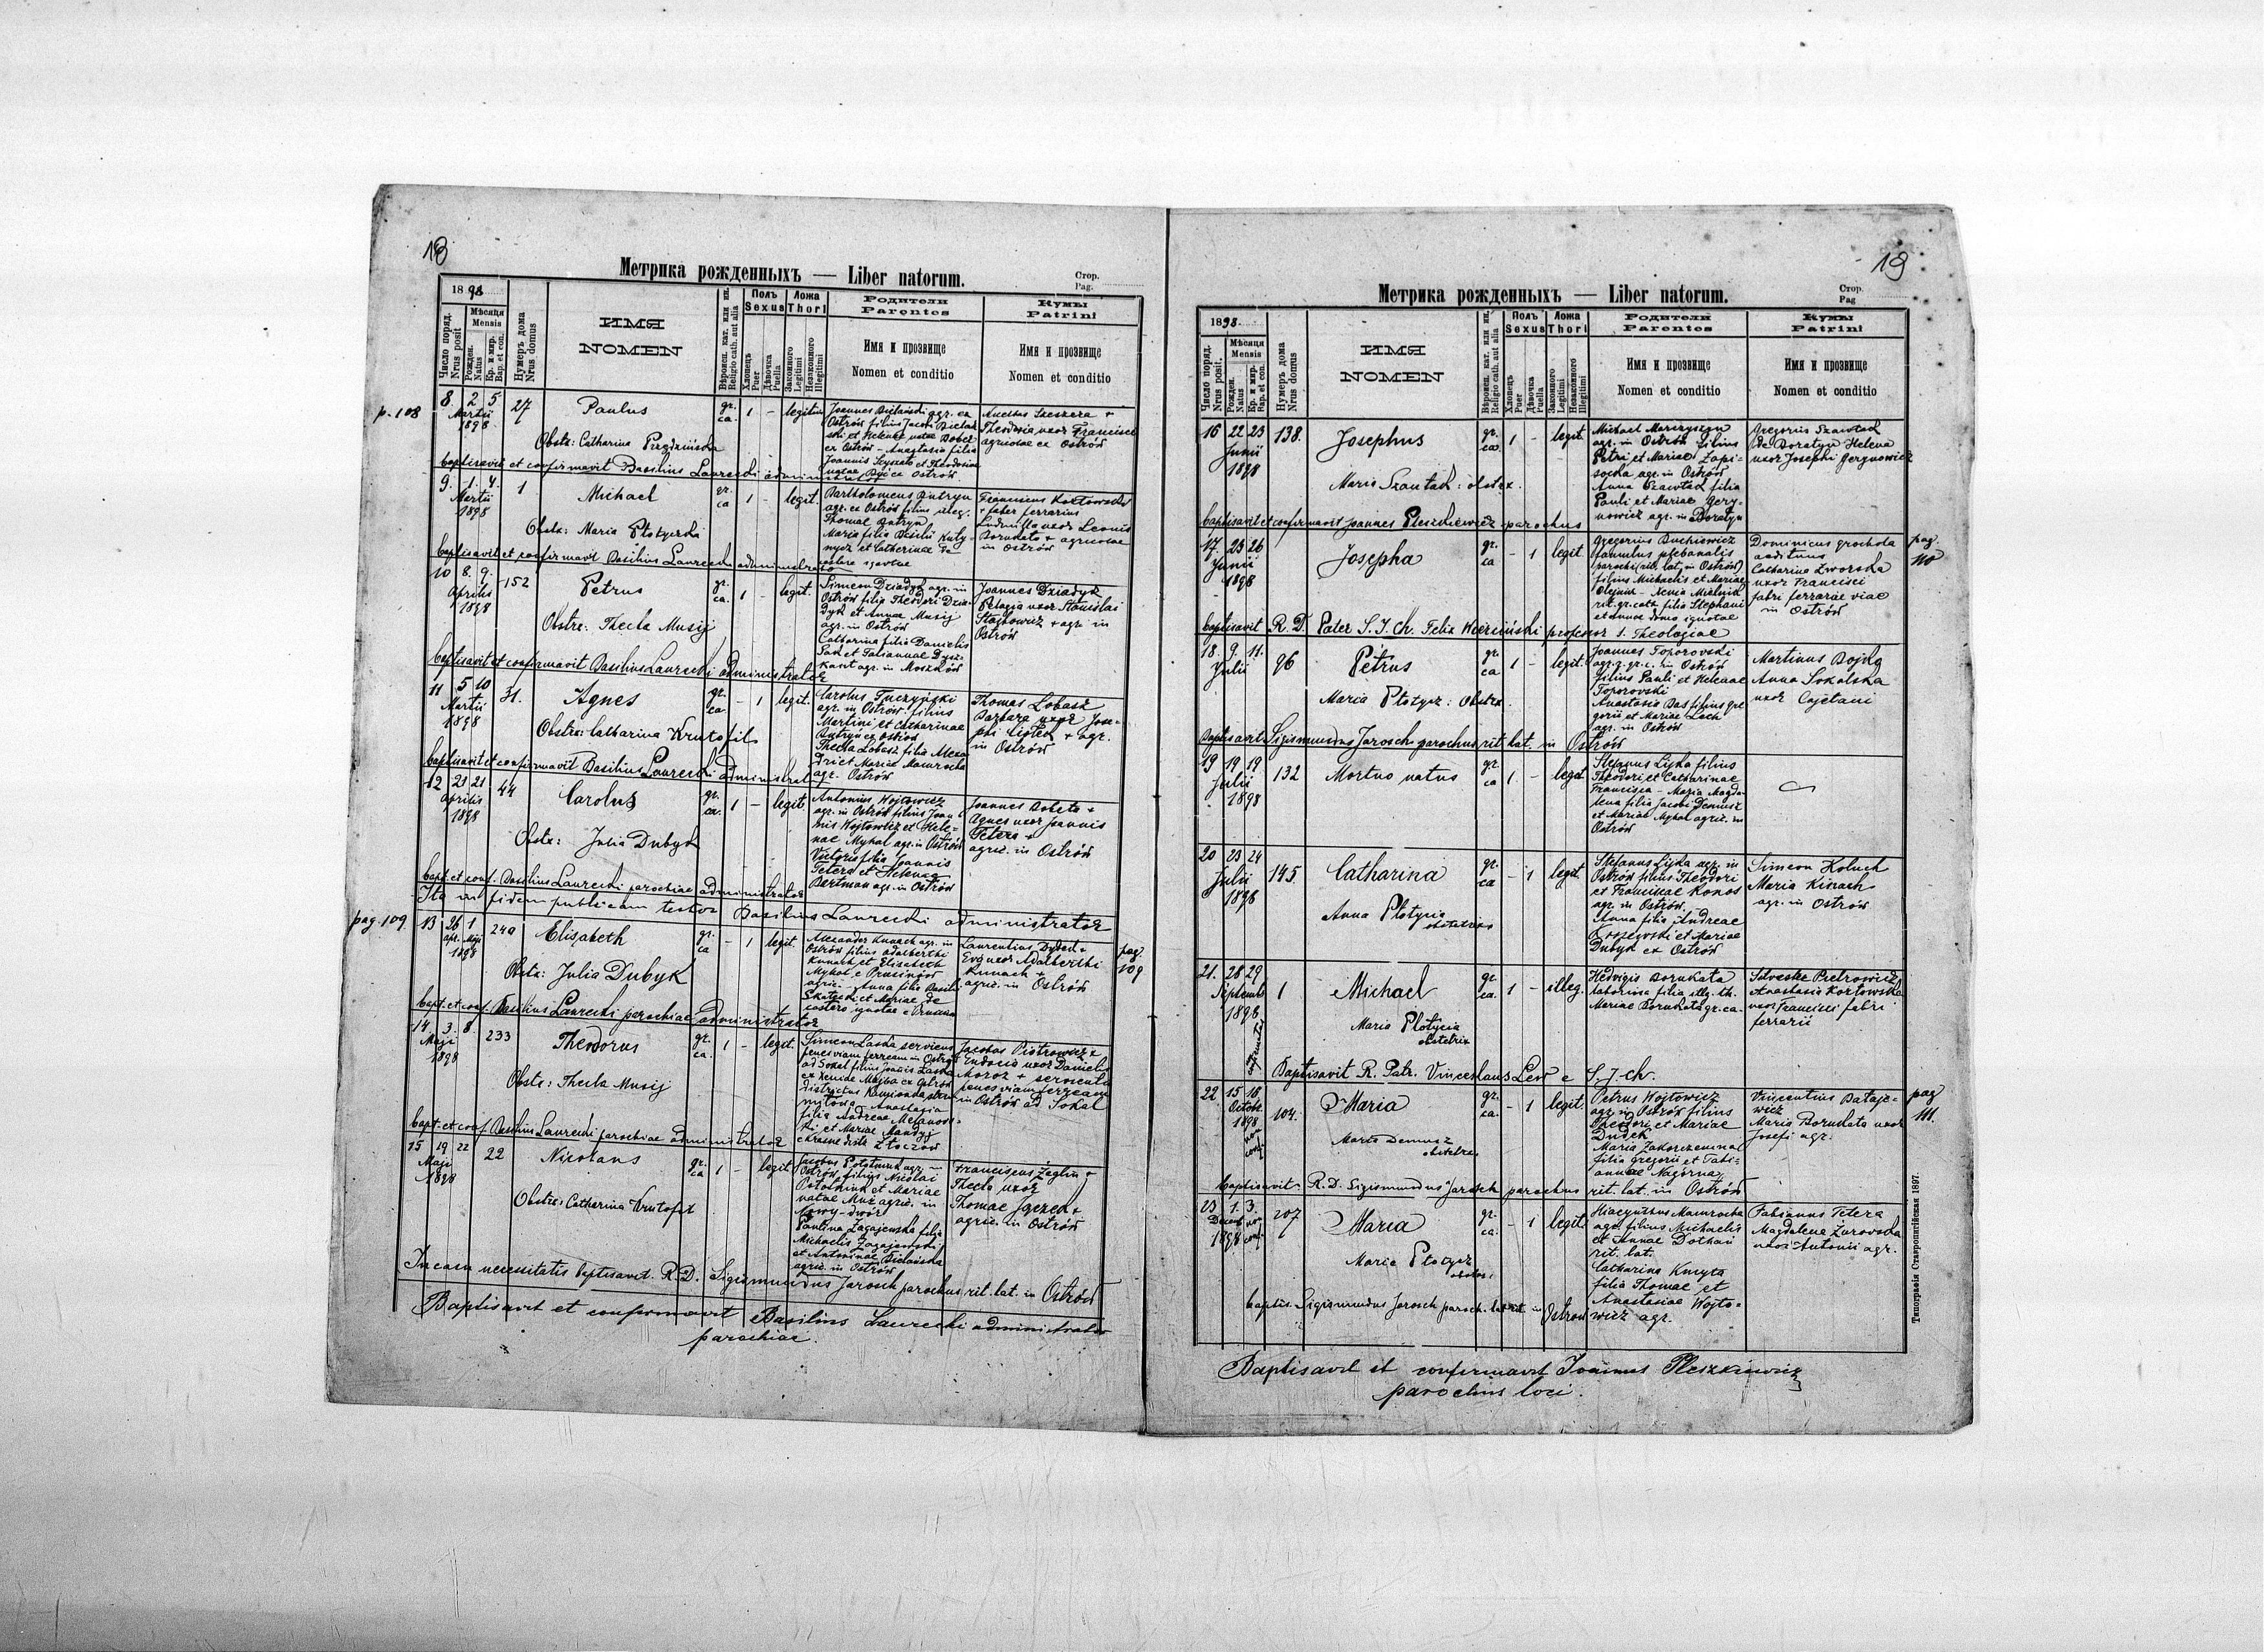 18
Метрика рожденныхъ — Liber natorum.
Стор.
Pag.
1898
Число поряд.
Nrus posit
Мѣсяця
Mensis
Рожден.
Natus
Кр. и мир.
Bap. et con.
Нумеръ дома
Nrus domus
ИМЯ
NOMEN
Вѣроисп. кат. или ин.
Religio cath. aut alia
Полъ
Sexus
Хлопець
Puer
Дѣвочка
Puella
Ложа
Thori
Законного
Legitimi
Незаконного
Illegitimi
Родители
Parentes
Имя и прозвище
Nomen et conditio
Кумы
Patrini
Имя и прозвище
Nomen et conditio
p. 108
8 2 5 27 Paulus gr. 1 – legitim
Martii ca.
1898
Obstx: Catharina
Ostrów filius Jacobi
ex Ostrów – Anastasia filia
Theodosia uxor Francisci
agricolae ex Ostrów
baptisavit et confirmavit Basilius Laurecki administrator
9. 1. 4. 1 Michael gr. 1 – legit.
Martii ca
1898
Obstx: Maria Plotycka
Bartholomeus Butryn
agr. ex Ostrów filius illeg.
Thomae Butryn
Maria filia Basilii
Franciscus Kortowski
+ faber ferrarius
Ludmilla uxor Leonis
Bornakato + agricolae
in Ostrów
baptisavit et confirmavit Basilius Laurecki administrator
10 8. 9. 152 Petrus gr. 1 – legit.
Aprilis ca.
1898
Obstx: Thecla Musij
Simeon Dziadyk agr. in
Ostrów filia Theodori Dzia-
dyk et Annae Musij
agr. in Ostrów
Catharina filia Danielis
agr. in Moszków
Joannes Dziadyk
Pelagia uxor Stanislai
Stachowicz + agr. in
Ostrów
baptisavit et confirmavit Basilius Laurecki administrator
11 5 10 31. Agnes gr. – 1 legit.
Martii ca.
1898
Obstx: Catharina Krutofil
Carolus Tuczyński
agr. in Ostrów filius
Martini et Catharinae
Butryn ex Ostrów
Thecla Lobasz filia Alexa
dri et Mariae Mamrocha
agr. Ostrów
Thomas Lobasz
Barbara uxor Jose-
phi + agr.
in Ostrów
baptisavit et confirmavit Basilius Laurecki administrator
12 21 21 44 Carolus gr. 1 – legit
Aprilis ca.
1898
Obstx: Julia Dubyk
Antonius Wojtowicz
agr. in Ostrów filius Joan
nis Wojtowicz et Hele-
nae Mykal agr. in Ostrów
Victoria filia Joannis
Tetera et Helenae
Bartman agr. in Ostrów
Joannes +
Agnes uxor Joannis
Tetera +
agric. in Ostrów
bapt. et conf. Basilius Laurecki parochiae administrator
Ita in fidem publicam testor Basilius Laurecki administrator
pag. 109
13 26 1 240 Elisabeth gr. – 1 legit.
apr. Maji ca
1898
Obstx: Julia Dubyk
Alexander Kunach agr. in
Ostrów filius Adalberthi
Kunach et Elisabeth
Mykal e Prusinów
agric. – Anna filia Basili
et Mariae de
cetero ignotae e Prusinów
Laurentius +
Eva uxor Adalberthi
Kunach +
agric. in Ostrów
pag.
109
bapt. et conf. Basilius Laurecki parochiae administrator
14. 3. 8. 233 Theodorus gr. 1 – legit.
Maji ca.
1898
Obstx: Thecla Musij
Simeon Laska serviens
penes viam ferream in Ostrów
ad Sokal filius Joanis Laska
ex Ostrów
districtus Kamionka
Anastasia
filia Andreae
et Mariae
e Krasne distr. Złoczów
Jacobus Piotrowicz +
Eudocia uxor Danielis
Moroz + servientes
penes viam ferream
in Ostrów ad Sokal
bapt. et conf. Basilius Laurecki parochiae administrator
15 19 22 22 Nicolaus gr. 1 – legit
Maji ca
1898
Obstx: Catharina Krutofil
Jacobus agr. in
Ostrów filius Nicolai
et Mariae
natae Muz agric. in
Nowy-dwór
Paulina Zagajewska filia
Michaelis Zagajewski
et Antoninae Bielańska
agric. in Ostrów
Franciscus Żeglin +
Thecla uxor
Thomae +
agric. in Ostrów
In casu necessitatis baptisavit R. D. Sigismundus Jarosch parochus rit. lat. in Ostrów
Baptisavit et confirmavit Basilius Laurecki administrator
parochiae.
19
Метрика рожденныхъ — Liber natorum.
Стор.
Pag
1898
Число поряд.
Nrus posit.
Мѣсяця
Mensis
Рожден.
Natus
Кр. и мир.
Bap. et con.
Нумеръ дома
Nrus domus
ИМЯ
NOMEN
Вѣроисп. кат. или ин.
Religio cath. aut alia
Полъ
Sexus
Хлопець
Puer
Дѣвочка
Puella
Ложа
Thori
Законного
Legitimi
Незаконного
Illegitimi
Родители
Parentes
Имя и прозвище
Nomen et conditio
Кумы
Patrini
Имя и прозвище
Nomen et conditio
16 22 23 138. Josephus gr. 1 – legit.
Junii ca.
1898
Maria Szawłach: obstx.
Michael Marczyszyn
agr. in Ostrów filius
Petri et Mariae Zapi-
socka agr. in Ostrów
Anna Szawłach filia
Pauli et Mariae Gery-
nowicz agr. in Boratyn
Gregorius Szawłach
de Boratyn Helena
uxor Josephi Gerynowicz
baptisavit et confirmavit Joannes Pleszkiewicz parochus
17. 25 26 Josepha gr. – 1 legit.
Junii ca
1898
Gregorius Buckiewicz
famulus plebanalis
parochi (rit. lat. in Ostrów)
filius Michaelis et Mariae
Olejnik – Xenia Mielnik
rit. gr. cath. filia Stephani
et Annae domo ignotae
Dominicus Grochola
aedituus
Catharina Zworska
uxor Francisci
fabri ferrariae viae
in Ostrów
pag.
110
baptisavit R. D. Pater S. J. Ch. Felix Wierciński professor s. Theologiae
18. 9. 11. 96 Petrus gr. 1 – legit.
Julii ca
Maria Plotycz: Obstx.
Joannes Toporovski
agr. g. gr. c. in Ostrów
filius Pauli et Helenae
Toporovski
Anastasia Bas filius gre
gorii et Mariae Lech
agr. in Ostrów
Martinus Bojko
Anna Sokalska
uxor Cajetani
Baptisavit Sigismundus Jarosch parochus rit. lat. in Ostrów
19 19 19 132 Mortuo natus gr. 1. – legit
Julii ca
1898
Stefanus Lyka filius
Theodori et Catharinae
Francisca – Maria Magda-
lena filia Jacobi Demusz
et Mariae Mykal agric. in
Ostrów
20 23 24 145. Catharina gr. – 1 legit.
Julii ca
1898
Anna Plotycia
obstetrix
Stefanus Lyka agr. in
Ostrów filius Theodori
et Franciscae Konos
agr. in Ostrów.
Anna filia Andreae
et Mariae
Dubyk ex Ostrów
Simeon Holuch
Maria Kinach
agr. in Ostrów
21. 28 29 1 Michael gr. 1 – illeg.
Septembr ca.
1898
Maria Plotycia
obstetrix
Hedvigis Bornakata
laborissa filia illg. th.
Mariae Bornakata gr. ca.
Silvester Pietrowicz
Anastasia Kortowska
uxor Francisci fabri
ferrarii
Baptisavit R. Patr. Vinceslaus Lew e S. J. Ch.
22 15 16 104. Maria gr. – 1 legit.
Octobr. ca.
1898 non conf.
Marta Demusz
obstetrix
Petrus Wojtowicz
agr. in Ostrów filius
Theodori et Mariae
Dudek
Maria
filia Gregorii et Tati-
annae Nagórna
Vincentius Bataje-
wicz
Maria Bornakata uxor
Josefi agr.
pag
111.
baptisavit R. D. Sigismundus Jarosch parochus rit. lat. in Ostrów
23 1. 3. 207 Maria gr. – 1 legit
Decemb ca.
1898 non conf.
Maria Plotycz
obstetr.
Hiacynthus Mamrocha
agr. filius Michaelis
et Annae Dothań
rit. lat.
Catharina Kmyta
filia Thomae et
Anastasiae Wojto-
wicz agr.
Fabianus Tetera
Magdalena Żurowska
uxor Antonii agr.
baptis. Sigismundus Jarosch paroch. lat rit in Ostrow
Baptisavit et confirmavit Joannes Pleszkiewicz
parochus loci.
Типографія Ставропигійская 1897.